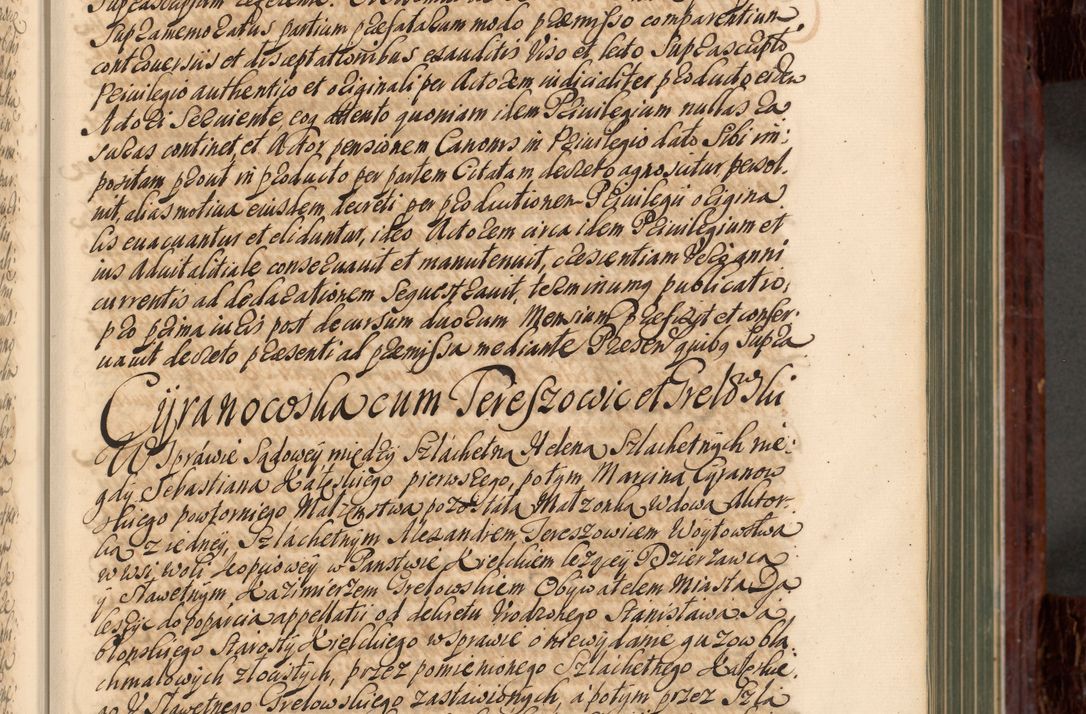 Supranemoratus partium praefatarum modo praemisso comparentium
controversiis et disceptationibus exauditis viso et lecto Suprascripto
Privilegio authentico et originali per Actorem iudicialiter producto eidem
Actori Serviente, eoq attento quoniam idem Privilegium nullas ra
suras continet et Actor pensionem Canonis in Privilegio dato Sibi im:
positam prout in producto per partem Citatam decreto agnoscitur persol
uit, alias motiva eiusdem decreti per productionem Privilegii origina
lis evacuantur et eliduntur, ideo Actorem circa idem Privilegium et
ius Advitalitiale conservavit et manutenuit, crescentiam vero anni
currentis ad declarationem Sequestravit, terminumq publicatio,
pro prima iuris post decursum duorum Mensium Praefixit et conser:
vavit decreto praesenti al praemissa mediante Praesen quibq Supra
Cyranowska cum Tereszowic et Grelowski
W Sprawie Sądowey między Szlachetną Helena Szlachetnych nie:
gdy Sebastiana Kateskiego pierwszego, potym Marcina Cyranow
skiego powtorniego Małzenstwa pozostała Małzonka wdowa Aktor:
ka z iedney, Szlachetnym Alexandrem Tereszowicem Woytowstwa
w wsi woli Kopcowey w Panstwie Kieleckiem leżącey Dzierżawcą
y Sławetnym Kazimierzem Grelowskiem Obywatelem Miasta Da
leszyc do poparcia appellatii od dekretu Urodzonego Stanisława Ja
błonskiego Starosty Kieleckiego w Sprawie o niewydanie guzow bla
chmalowych złocistych, przez pomienionego Szlachetnego Kateskie:
go y Sławetnego Grelowskiego zastawionych, a potym przez Szla